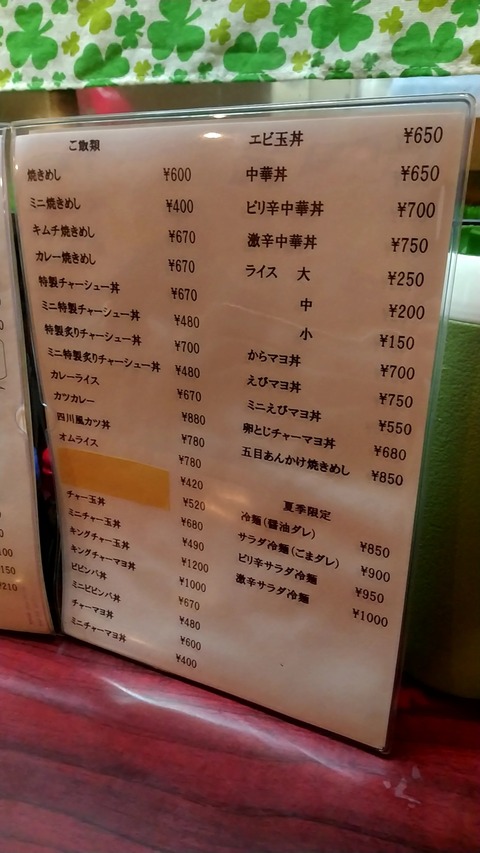 ご飯類
焼きめし ¥600
ミニ焼きめし ¥400
キムチ焼きめし ¥670
カレー焼きめし ¥670
特製チャーシュー丼 ¥670
ミニ特製チャーシュー丼 ¥480
特製炙りチャーシュー丼 ¥700
ミニ特製炙りチャーシュー丼 ¥480
カレーライス ¥670
カツカレー ¥880
四川風カツ丼 ¥780
オムライス ¥780
¥420
¥520
チャー玉丼 ¥680
ミニチャー玉丼 ¥490
キングチャー玉丼 ¥1200
キングチャーマヨ丼 ¥1000
ビビンバ丼 ¥670
ミニビビンバ丼 ¥480
チャーマヨ丼 ¥600
ミニチャーマヨ丼 ¥400
エビ玉丼 ¥650
中華丼 ¥650
ピリ辛中華丼 ¥700
激辛中華丼 ¥750
ライス 大 ¥250
中 ¥200
小 ¥150
からマヨ丼 ¥700
えびマヨ丼 ¥750
ミニえびマヨ丼 ¥550
卵とじチャーマヨ丼 ¥680
五目あんかけ焼きめし ¥850
夏季限定
冷麺(醤油ダレ) ¥850
サラダ冷麺(ごまダレ) ¥900
ピリ辛サラダ冷麺 ¥950
激辛サラダ冷麺 ¥1000